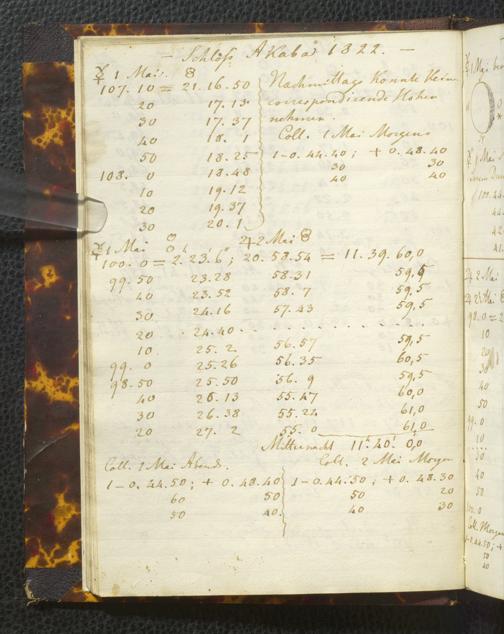 — Schloss Akaba 1822. —
☿ 1 Mai. 8
107. 10 = 21. 16. 50
20 17. 13
30 17. 37
40 18. 1
50 18. 25
108. 0 18. 48
10 19. 12
20 19. 37
30 20. 1
Nachmittags konnte keine
correspondirende Höhen
nehmen.
Coll. 1 Mai Morgens
1 - 0. 44. 40; + 0. 48. 40
30 30
40 40
☿ 1 Mai ♃ 2 Mai
100. 0 = 2. 23. 6; 20. 58. 54 = 11. 39. 60,0
99. 50 23. 28 58. 31 59,5
40 23. 52 58. 7 59,5
30 24. 16 57. 43 59,5
20 24. 40
10 25. 2 56. 57 59,5
99. 0 25. 26 56. 35 60,5
98. 50 25. 50 56. 9 59,5
40 26. 13 55. 47 60,0
30 26. 38 55. 24 61,0
20 27. 2 55. 0 61,0
Mitternacht 11. 40. 0,0
Coll. 1 Mai Abends.
1 - 0. 44. 50; + 0. 48. 40
60 50
50 40.
Coll. 2 Mai Morgen
1 - 0. 44. 50; + 0. 48. 30
50 20
40 30